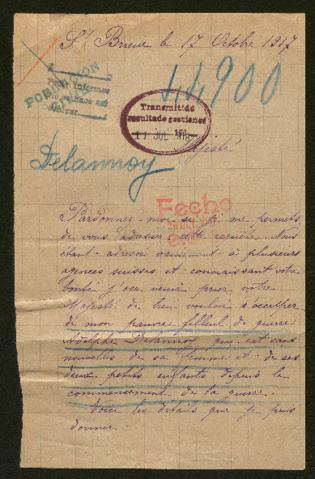 St Brieuc le 17 Octobre 1917
POBLACION CIVIL
44900
Transmitidas
resultado gestiones
17 JUL. 1918
Majesté
Delannoy
Fecho
Pardonnez-moi si je me permets
de vous adresser cette requête. Nous
étant adressé vainement à plusieurs
agences suisses et connaissant votre
bonté j'ose venir prier votre
Majesté de bien vouloir s'occuper
de mon pauvre filleul de guerre
Adolphe Delannoy qui est sans
nouvelles de sa femme et de ses
deux petits enfants depuis le
commencement de la guerre.
Voici les détails que je puis
donner: